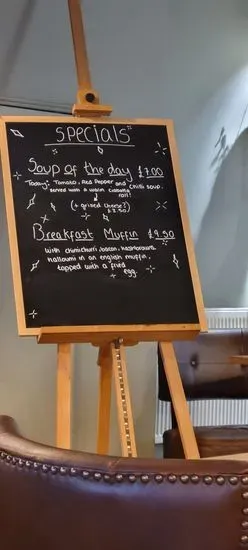 SPECIALS
Soup of the day £7.00
Today: Tomato, Red Pepper and Chilli soup.
served with a warm ciabatta
roll!
(+ grilled cheese?)
£2.50
Breakfast Muffin £9.50
with chimichurri, bacon,
halloumi in an english muffin,
topped with a fried
egg.